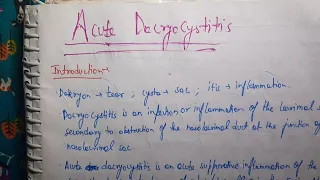 Acute Dacryocystitis
Introduction-
Dakryon → tear ; cysta → sac ; itis → inflammation.
Dacryocystitis is an infection or inflammation of the lacrimal s
secondary to obstruction of the nasolacrimal duct at the junction of
nasolacrimal sac.
• Acute dacryocystitis is an acute suppurative inflammation of the